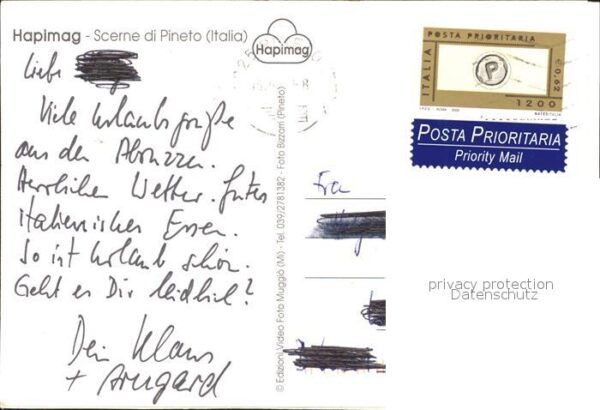 Hapimag - Scerne di Pineto (Italia)
Hapimag
Liebe
Viele Urlaubsgrüße
aus den Abruzzen.
Herrliches Wetter. Gutes
italienisches Essen.
So ist Urlaub schön.
Geht es Dir leidlich?
Dein Klaus
+ Irmgard
© Edizioni Video Foto Muggiò (Mi) - Tel. 039/2781382 - Foto Bizzarri (Pineto)
Fra
POSTA PRIORITARIA
ITALIA
P
€0,62
1200
POSTA PRIORITARIA
Priority Mail
privacy protection
Datenschutz